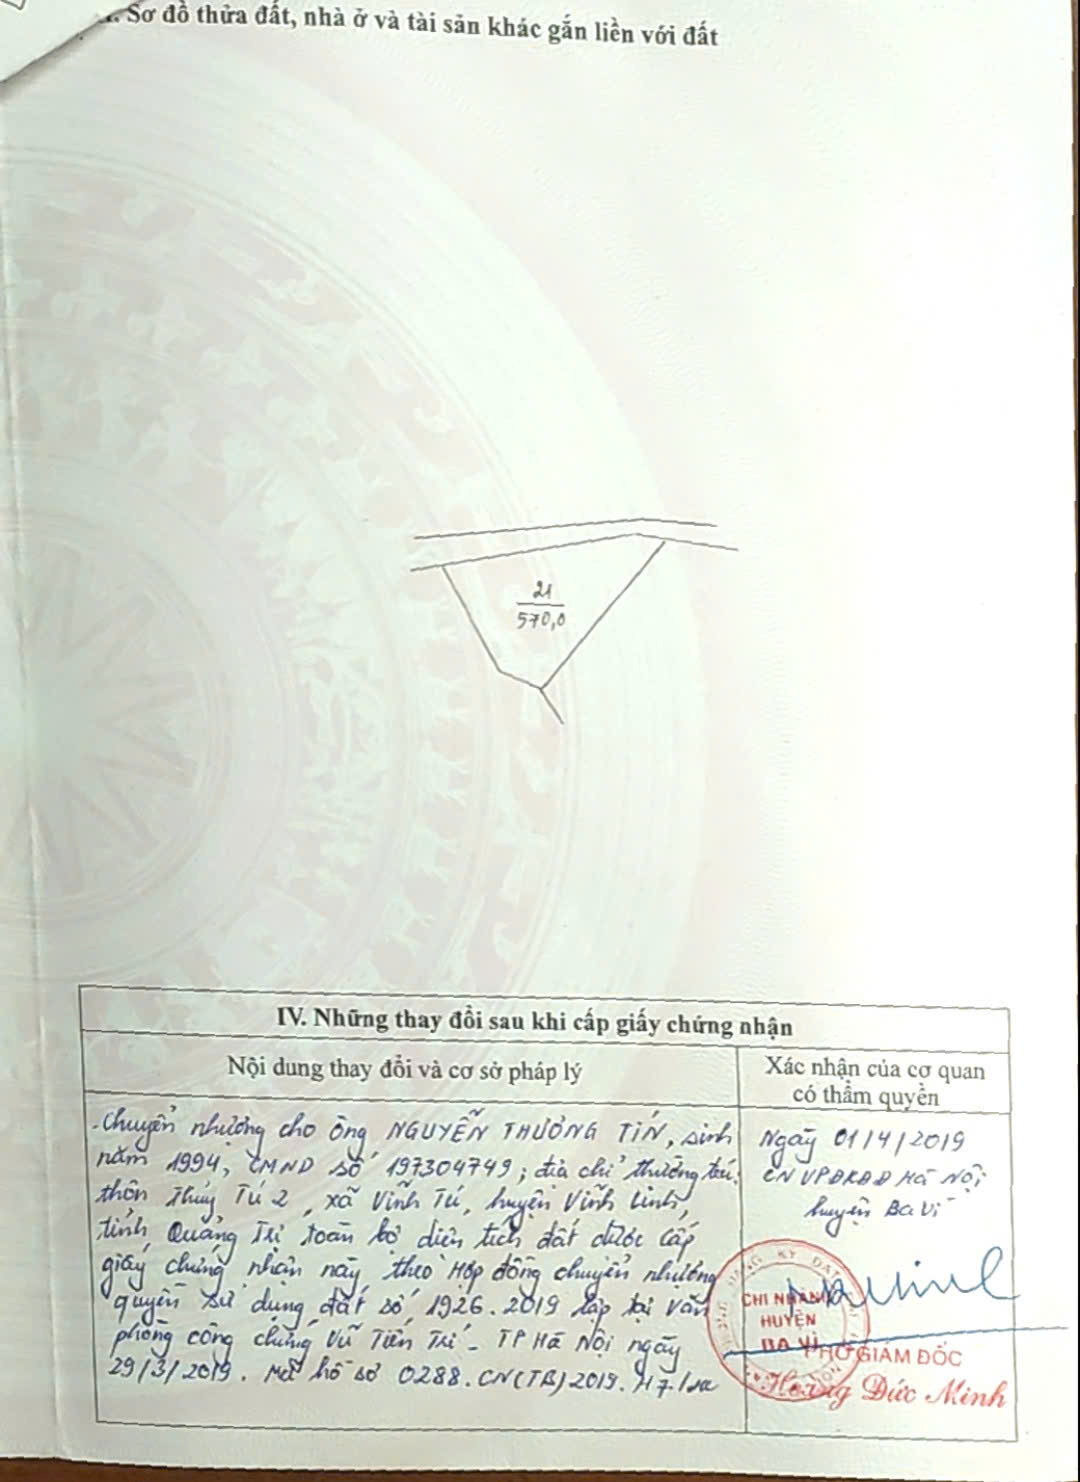 Sơ đồ thửa đất, nhà ở và tài sản khác gắn liền với đất
21
570,0
IV. Những thay đổi sau khi cấp giấy chứng nhận
Nội dung thay đổi và cơ sở pháp lý
Xác nhận của cơ quan
có thẩm quyền
- Chuyển nhượng cho ông NGUYỄN THƯỞNG TÍN, sinh
năm 1994, CMND số 197304749; địa chỉ thường trú:
thôn Thủy Tú 2, xã Vĩnh Tú, huyện Vĩnh Linh,
tỉnh Quảng Trị toàn bộ diện tích đất được cấp
giấy chứng nhận này, theo Hợp đồng chuyển nhượng
quyền sử dụng đất số 1926.2019 lập tại Văn
phòng công chứng Vũ Tiến Trí - TP Hà Nội ngày
29/3/2019. Mã hồ sơ 0288.CN(TB)2019.H7.
Ngày 01/4/2019
CN VPĐKĐĐ Hà Nội
huyện Ba Vì
CHI NHÁNH
HUYỆN
BA VÌ
PHÓ GIÁM ĐỐC
Hoàng Đức Minh